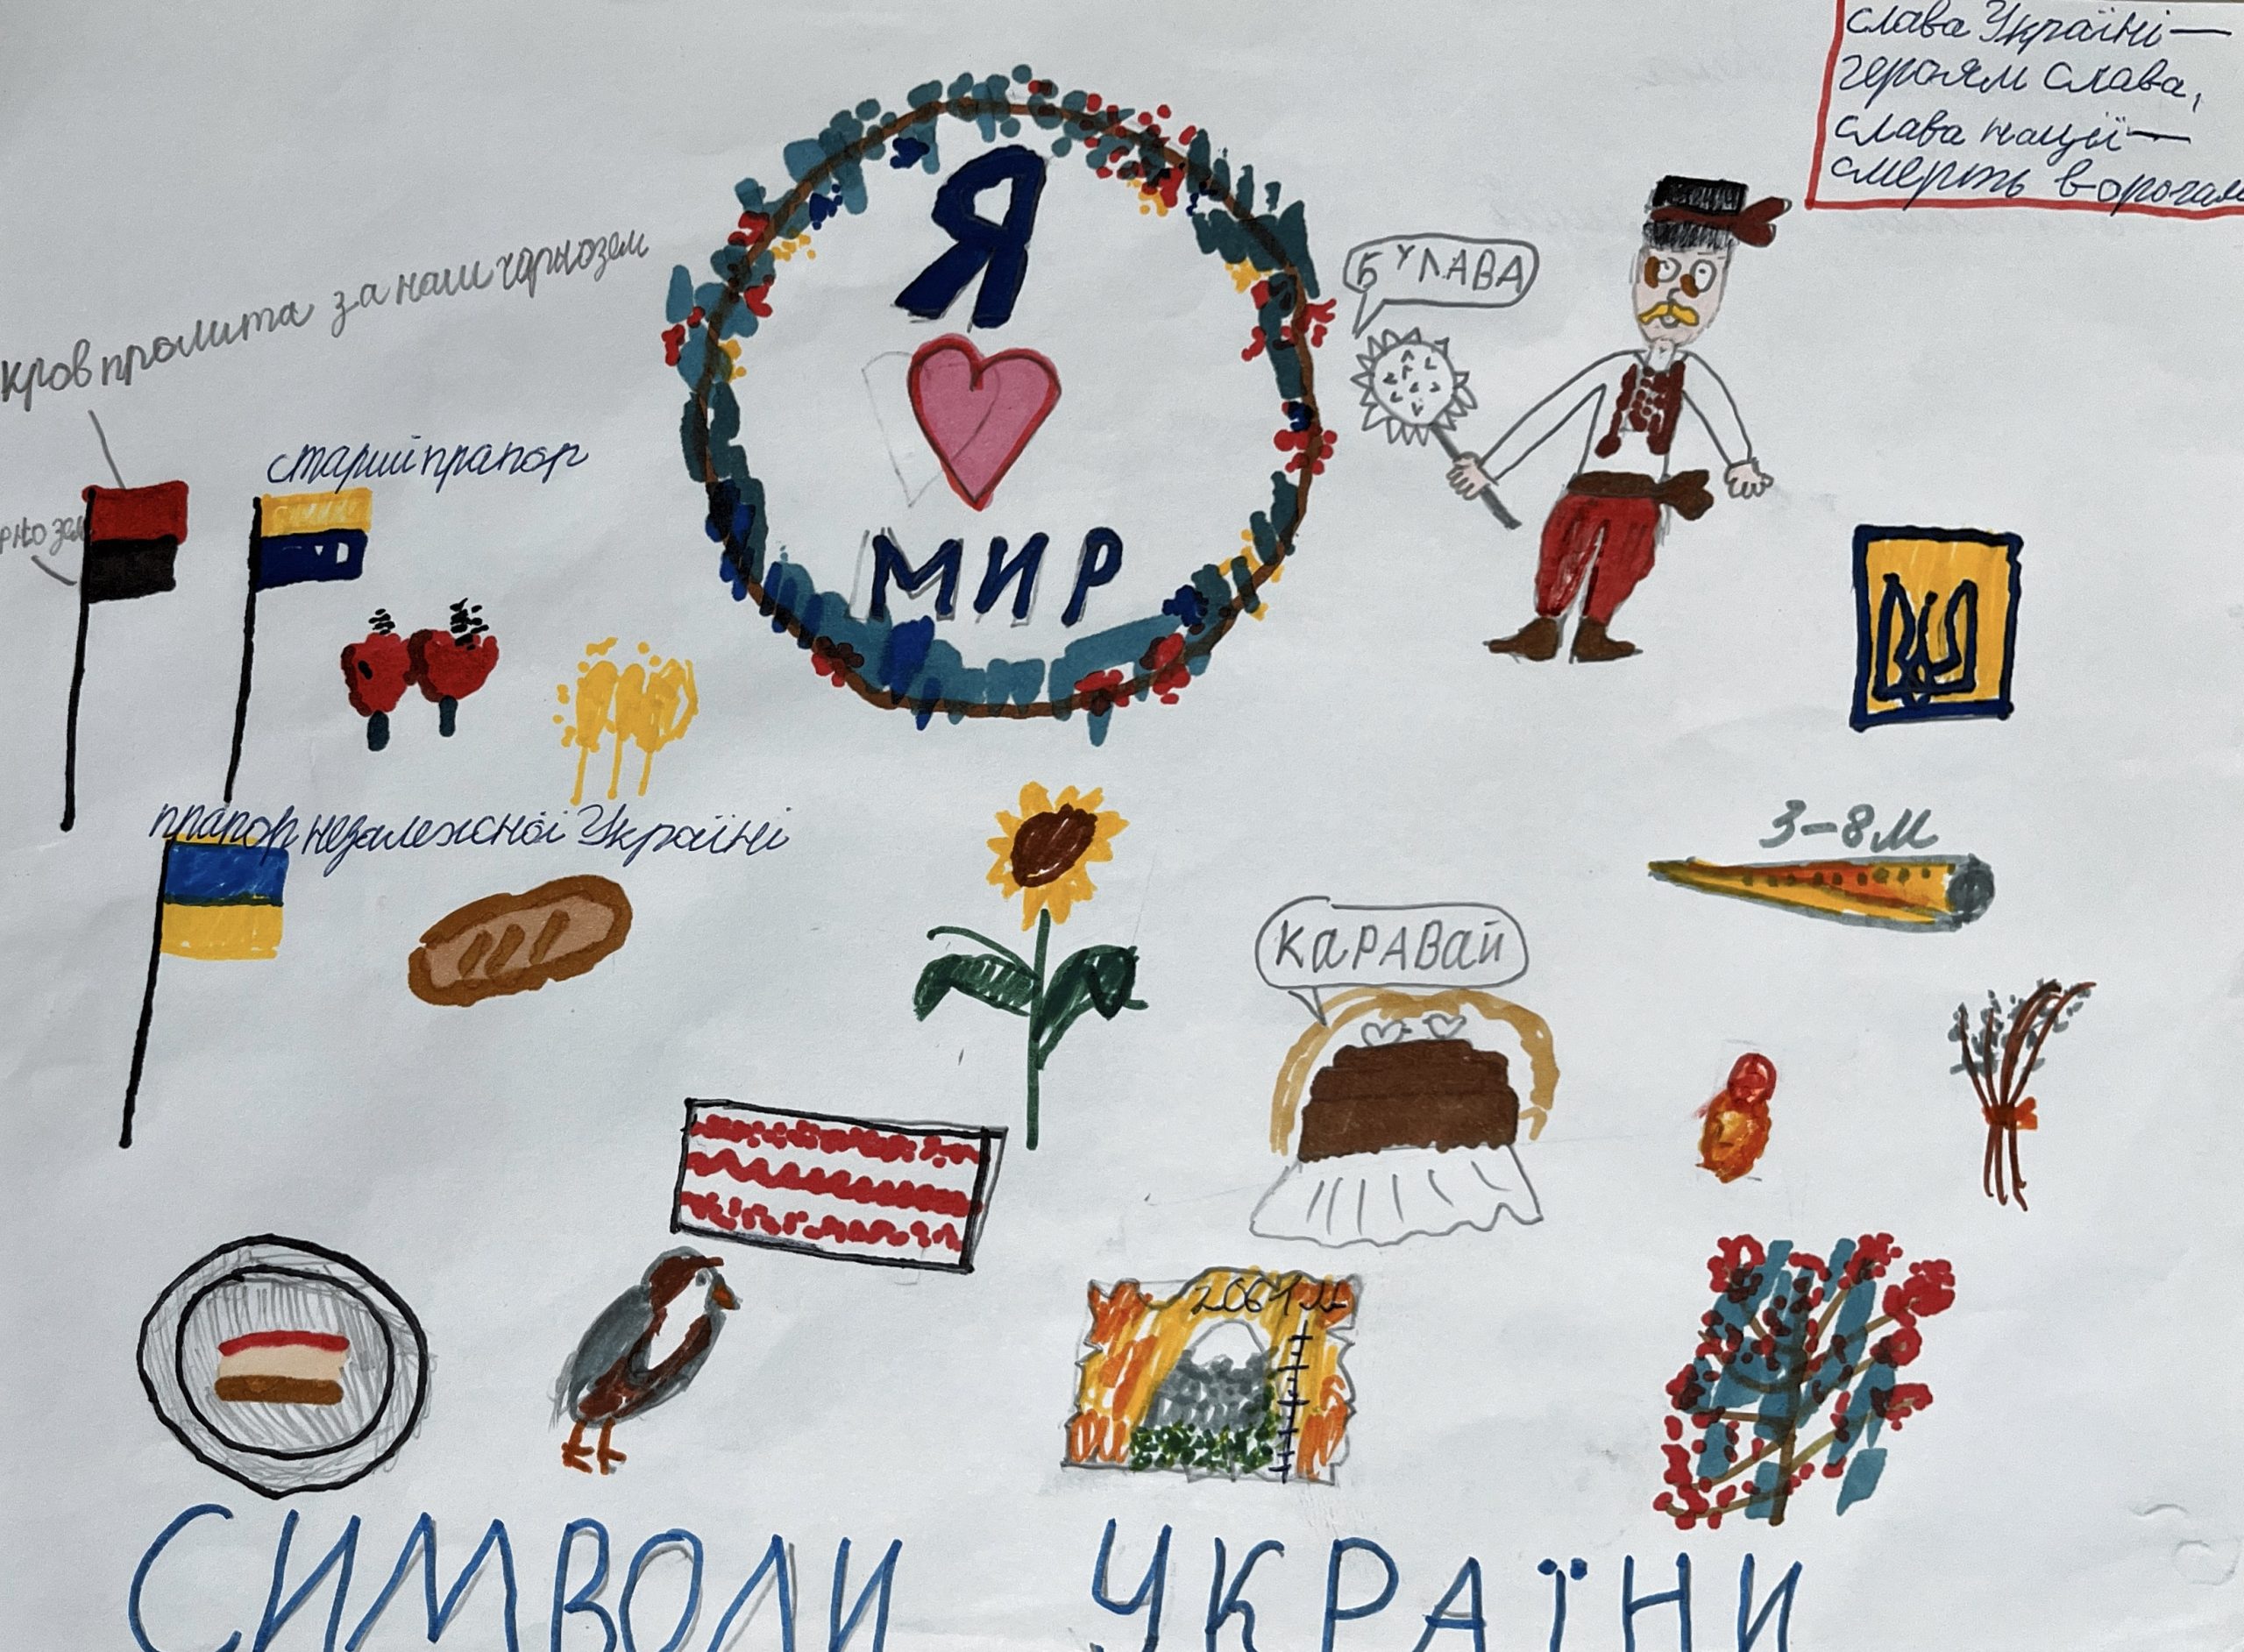 слава Україні—
героям слава,
слава нації—
смерть ворогам
Я
МИР
БУЛАВА
кров пролита за наш чорнозем
старий прапор
рнозем
прапор незалежної Україні
3-8м
КАРАВАЙ
2061м
СИМВОЛИ УКРАЇНИ